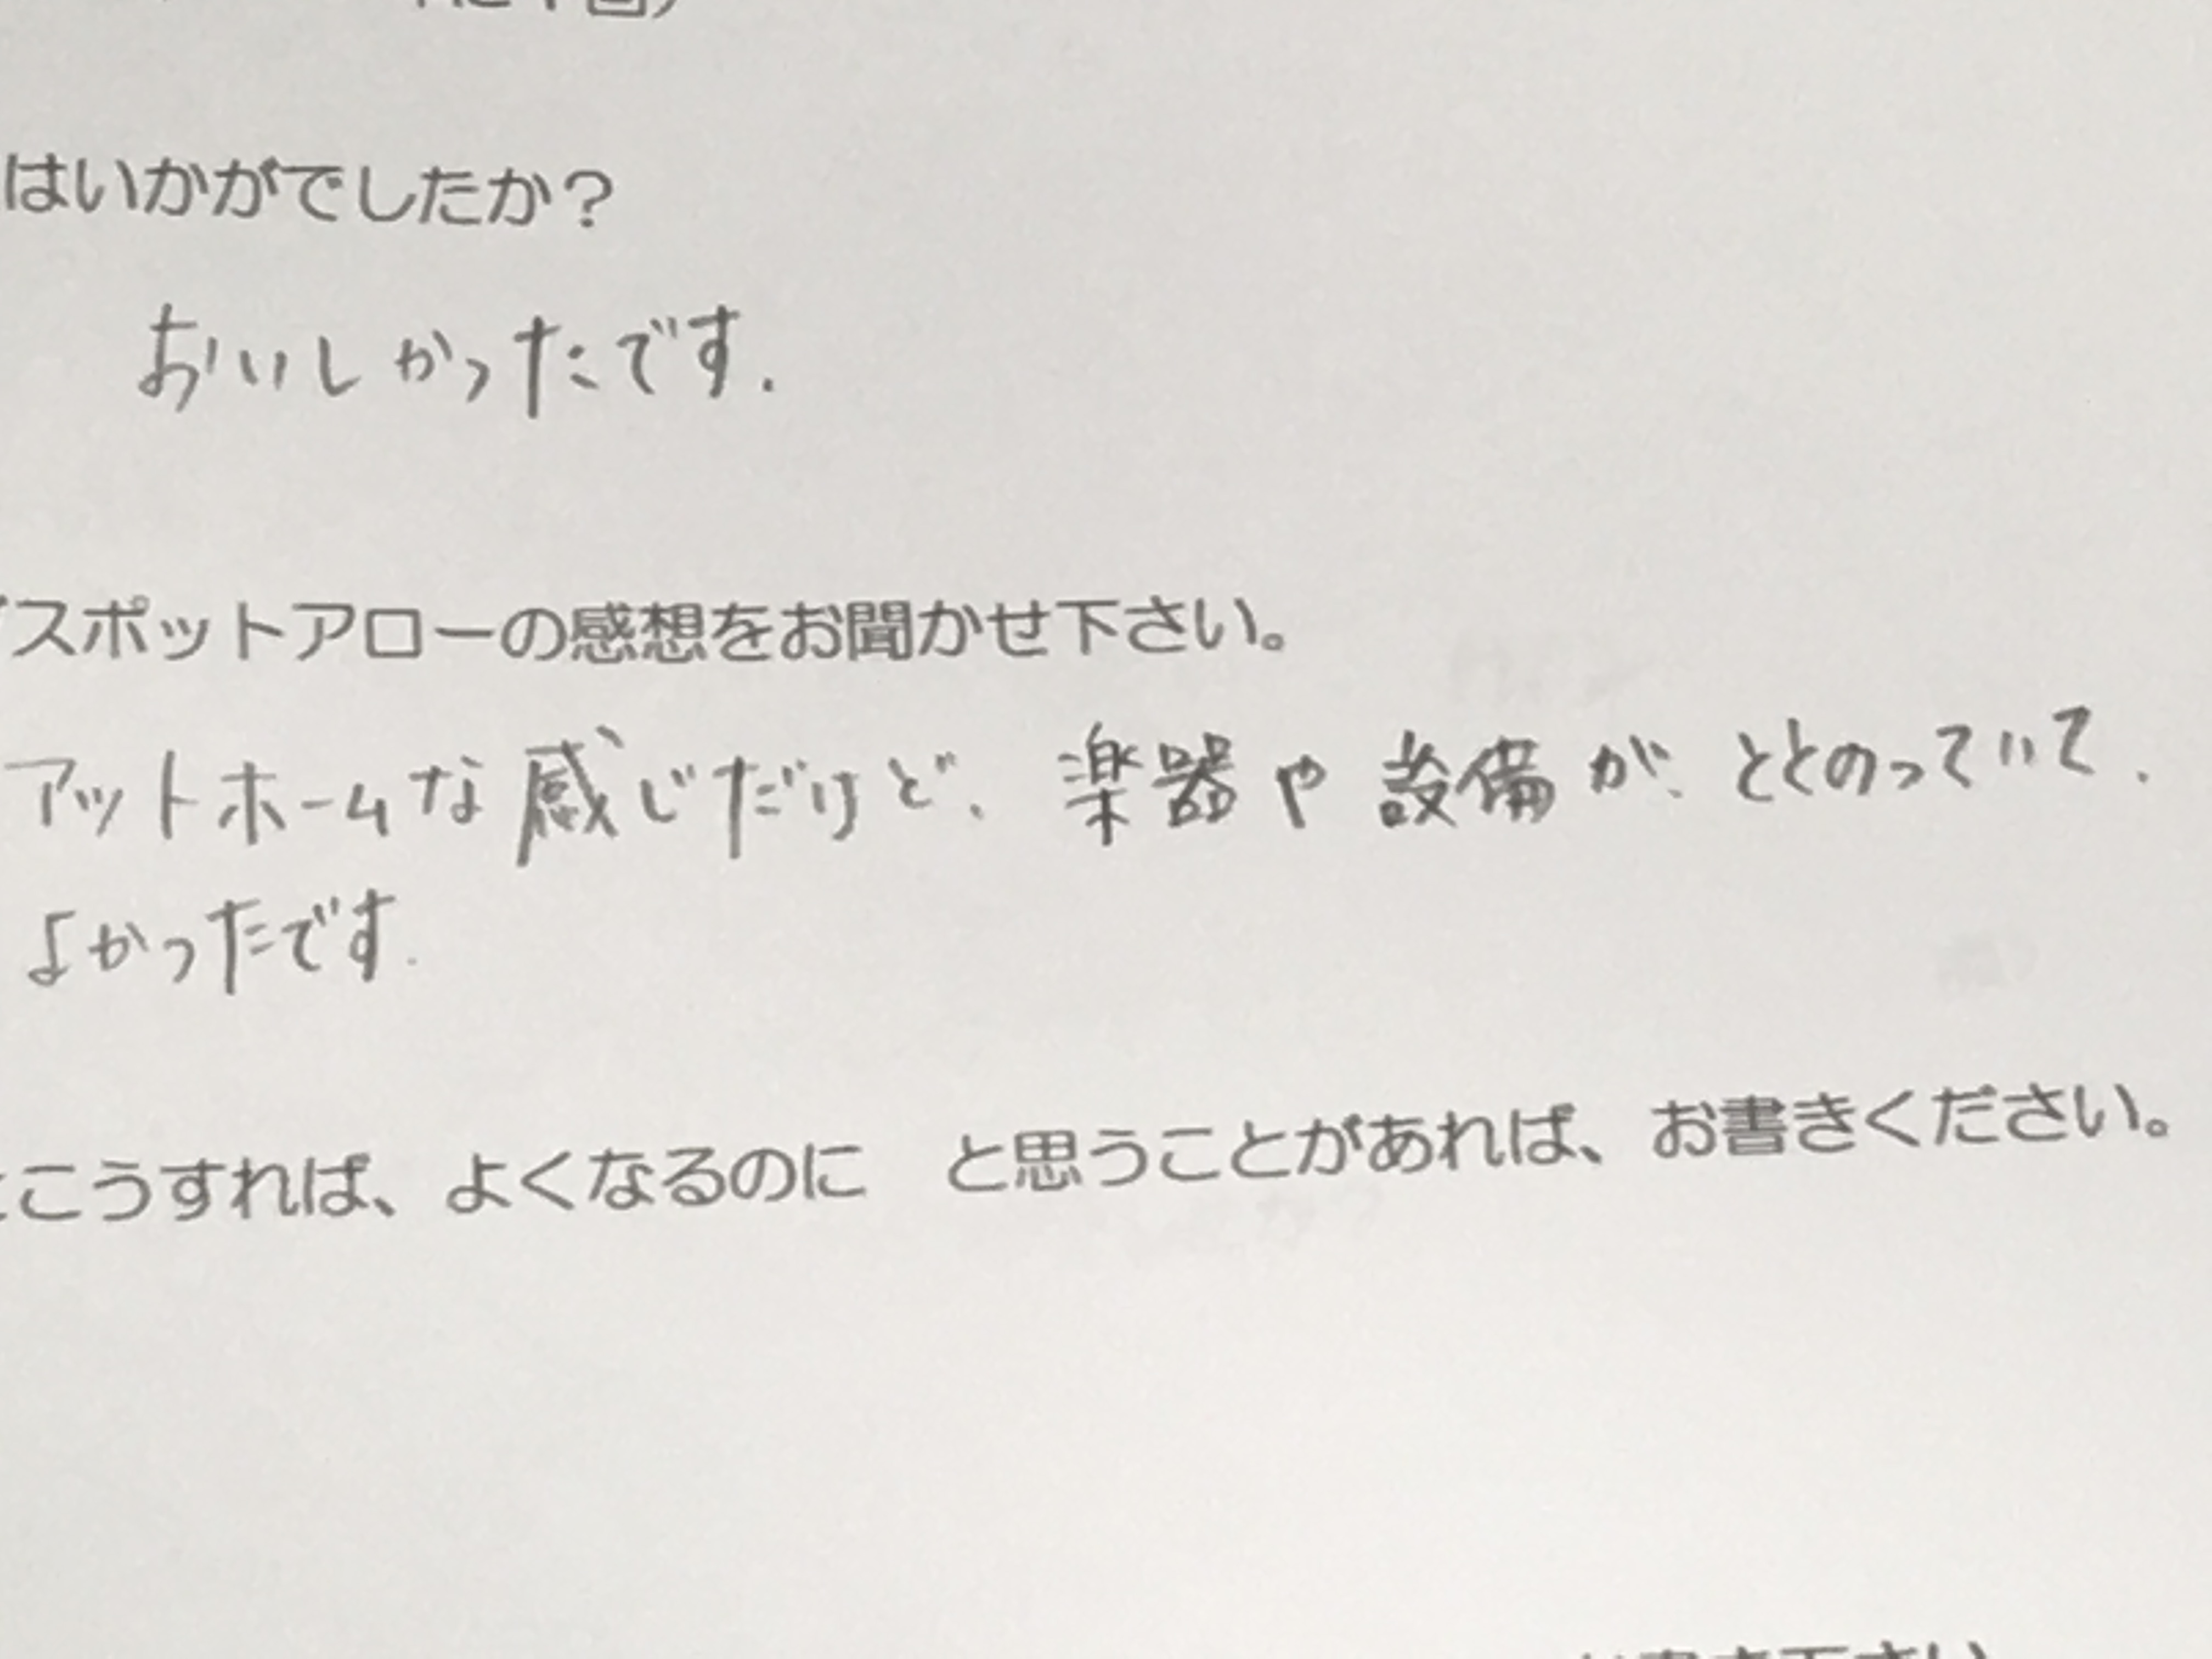 はいかがでしたか？
おいしかったです.
スポットアローの感想をお聞かせ下さい。
アットホームな感じだけど、楽器や設備が、ととのっていて.
よかったです.
こうすれば、よくなるのに　と思うことがあれば、お書きください。